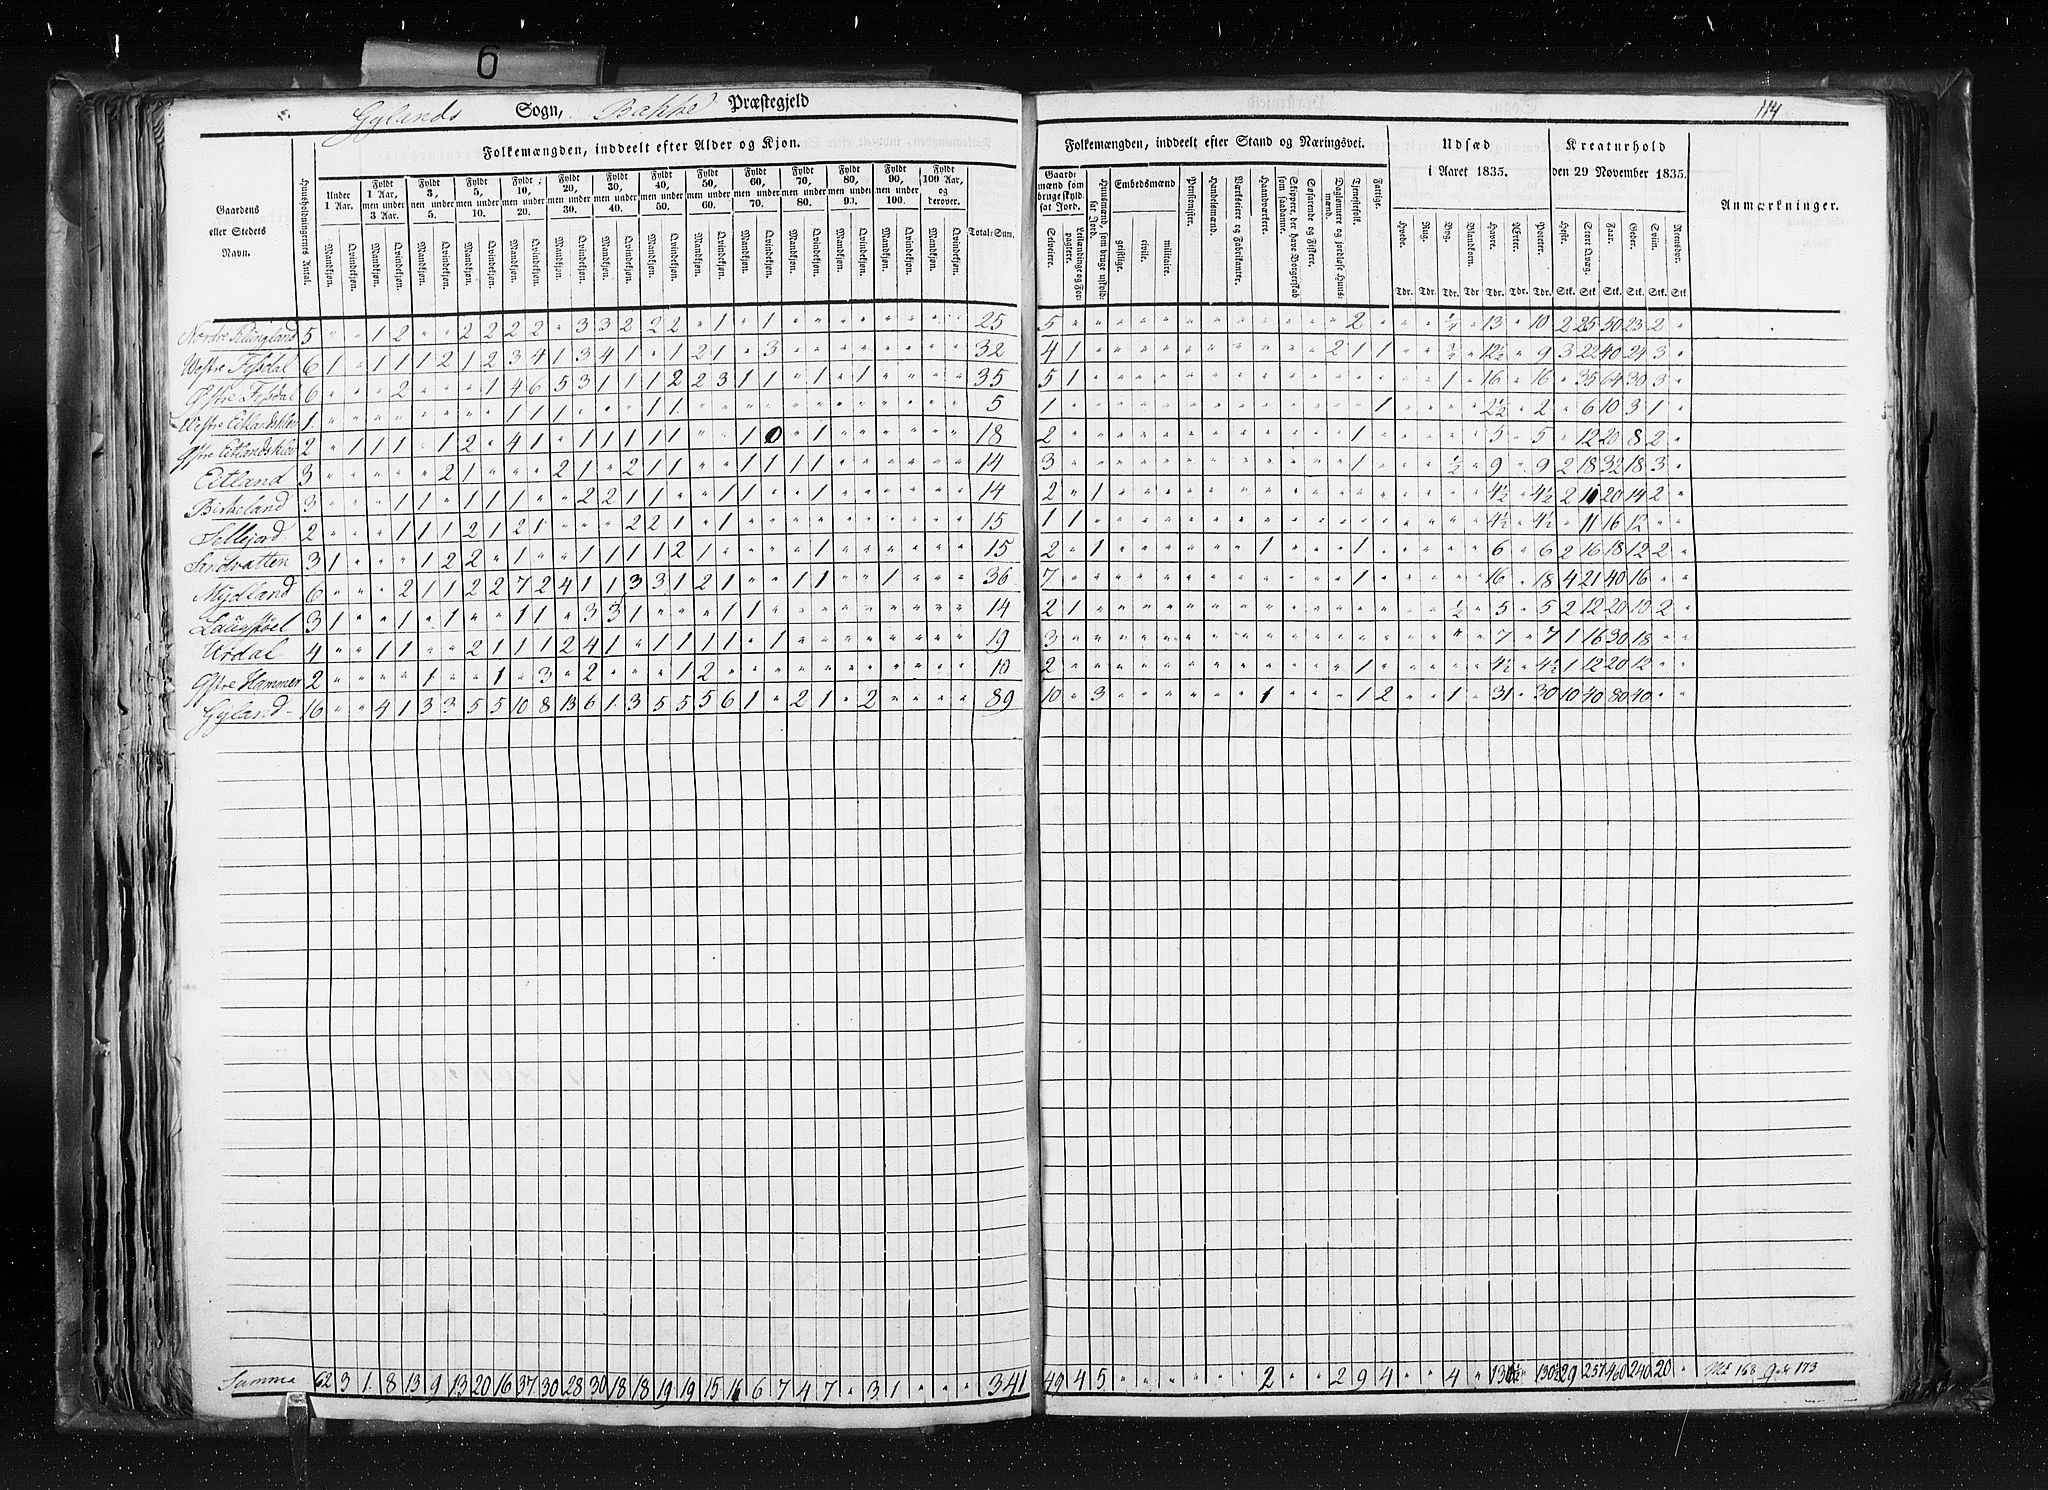 6
Gylands Sogn, Bakke Præstegjeld
114
Folkemængden, inddeelt efter Alder og Kjøn.
Folkemængden, inddeelt efter Stand og Næringsvei.
Udsæd i Aaret 1835.
Kreaturhold den 29 November 1835.
Anmærkninger.
Gaardens eller Stedets Navn.
Huusholdningernes Antal.
Under 1 Aar.
Fyldt 1 Aar, men under 3 Aar.
Fyldt 3, men under 5.
Fyldt 5, men under 10.
Fyldt 10, men under 20.
Fyldt 20, men under 30.
Fyldt 30, men under 40.
Fyldt 40, men under 50.
Fyldt 50, men under 60.
Fyldt 60, men under 70.
Fyldt 70, men under 80.
Fyldt 80, men under 90.
Fyldt 90, men under 100.
Fyldt 100 Aar, og derover.
Mandkjøn. Qvindekjøn.
Total-Sum.
Gaardmænd som bruge skyldsat Jord.
Selveiere.
Leilændinge og Forpagtere.
Huusmænd, som bruge uskyldsat Jord.
Embedsmænd
geistlige. civile. militaire.
Pensionister.
Handelsmænd.
Værkseiere og Fabrikanter.
Haandværkere.
Skippere, der have Borgerskab som saadanne.
Søfarende og Fiskere.
Daglønnere og jordløse Huusmænd.
Tjenestefolk.
Fattige.
Hvede. Rug. Byg. Blandkorn. Havre. Ærter. Poteter.
Heste. Stort Qvæg. Faar. Geder. Sviin. Rensdyr.
Tdr. Tdr. Tdr. Tdr. Tdr. Tdr. Tdr. Stk. Stk. Stk. Stk. Stk. Stk.
Nordre 5 " " 1 2 " " 2 2 2 2 " 3 3 2 2 2 " 1 " 1 " " " " " " " " 25 5 2 1/4 13 10 2 25 50 23 2
Westre Fesdal 6 1 " 1 1 1 2 1 2 3 4 1 3 4 1 " 1 2 1 " 3 32 4 1 2 1 1 3/4 12½ 9 3 22 40 24 3
Østre Fesdal 6 " " " 2 " " " 1 4 6 5 3 1 1 1 2 2 3 1 1 " 1 " 1 35 5 1 1 16 16 " 35 64 30 3
Westre Eitlandsklev 1 1 1 1 1 1 5 1 1 2½ 2 " 6 10 3 1
Østre Eitlandsklev 2 " 1 1 1 " 1 2 " 4 1 " 1 1 1 1 1 " " 1 0 " 1 18 2 1 5 5 " 12 20 8 2
Eitland 3 2 1 2 1 " 2 1 1 " " 1 1 1 1 14 3 1 ½ 9 9 2 18 32 18 3
Birkeland 3 " " " 1 1 " 1 1 1 " " 2 2 1 1 " " 1 1 " " 1 14 2 " 1 4½ 4½ 2 10 20 14 2
Sellejord 2 " " " 1 1 1 2 1 2 1 " " " 2 2 1 " 1 15 1 1 4½ 4½ " 11 16 12
Sandvatten 3 1 " " " 1 2 2 " 1 " " 1 1 1 1 2 1 " " " " 1 15 2 " 1 1 1 6 6 2 16 18 12 2
Mydland 6 " " " 2 1 1 2 2 7 2 4 1 1 3 3 1 2 1 " " 1 1 " " 1 36 7 1 16 18 4 21 40 16
Laugstøel 3 1 " " 1 " 1 " " 1 1 " 3 3 1 " " " 1 1 14 2 1 ½ 5 5 2 12 20 10 2
Urdal 4 " " 1 1 " " 2 1 1 1 2 4 1 " 1 1 1 1 " 1 19 3 7 7 1 16 30 18
Østre Hammer 2 " " " " 1 " " 1 " 3 " 2 " " " 1 2 10 2 1 4½ 4½ 1 12 20 12
Gyland 16 " " 4 1 3 3 5 5 10 8 13 6 1 3 5 5 5 6 1 " 2 1 " 2 89 10 " 3 1 1 2 1 31 30 10 40 80 40
Summa 62 3 1 8 13 9 13 20 16 37 30 28 30 18 18 19 19 15 16 6 7 4 7 " 3 1 " " " 341 49 4 5 2 2 9 4 4 130½ 130½ 29 257 460 240 20 " Mk 168 Qvk 173